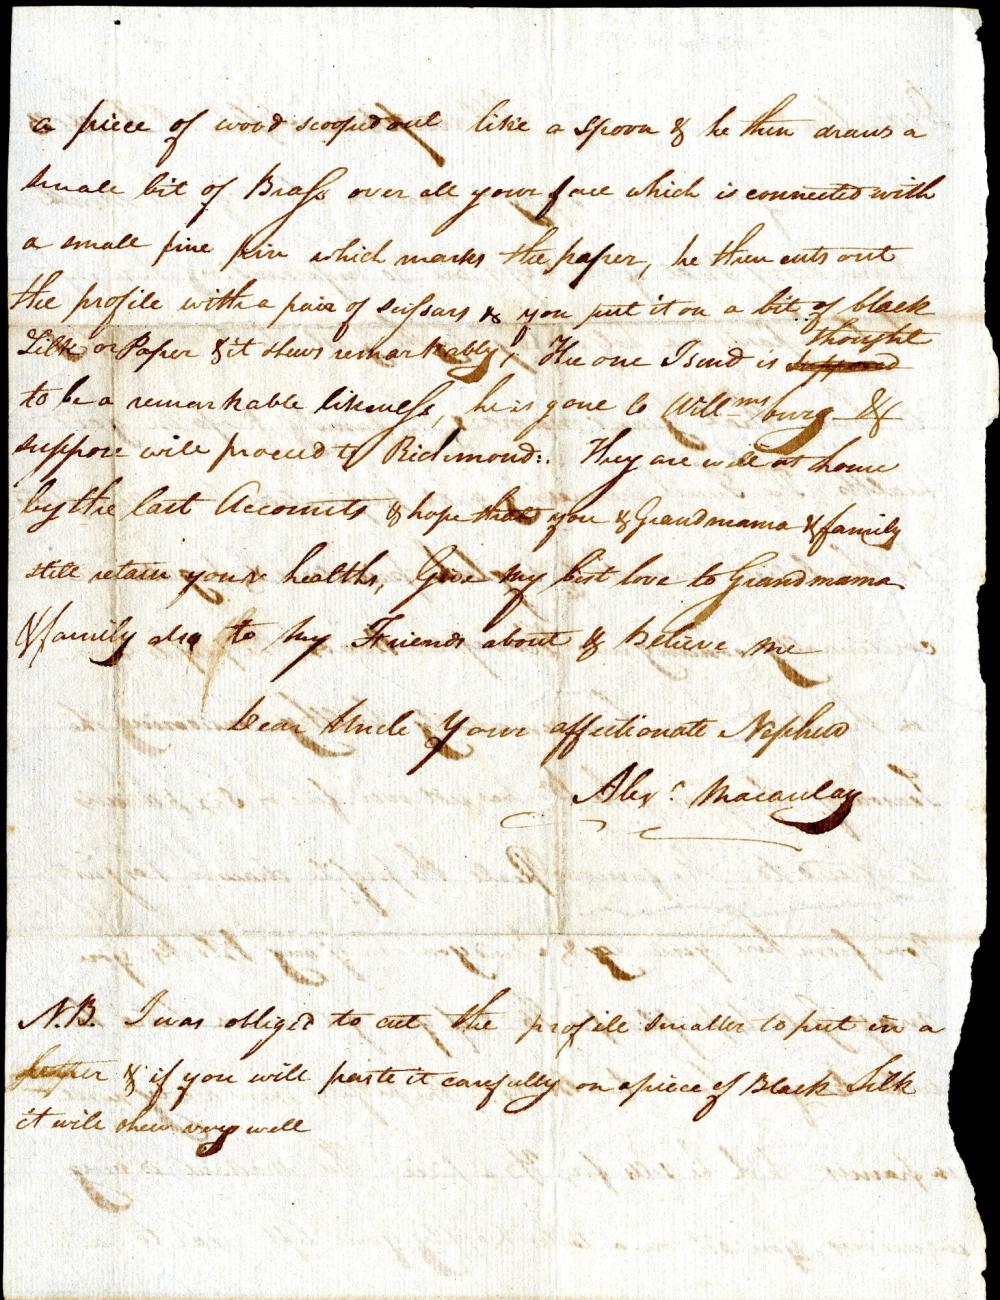 a piece of wood scooped out like a spoon & he then draws a
small bit of Brass over all your face which is connected with
a small fine pin which marks the paper, he then cuts out
the profile with a pair of scissars & you put it on a bit of black
Silk or Paper & it shews remarkably; The one I send is thought
to be a remarkable likeness, he is gone to Willmsburg &
suppose will proceed to Richmond:. They are well at home
by the last Accounts & hope that you & Grandmama & family
still retain your healths, Give my best love to Grandmama
& family also to my Friends about & believe me
Dear Uncle Your affectionate Nephew
Alexr. Macaulay
N.B. I was obliged to cut the profile smaller to put in a
& if you will paste it carefully on a piece of Black Silk
it will shew very well